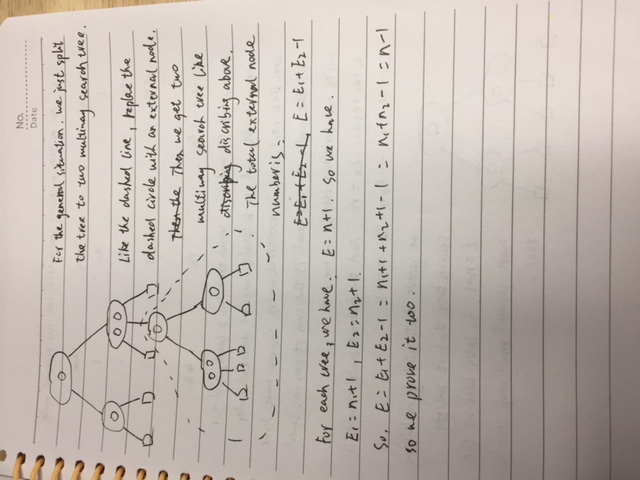 No.
Date
For the general situation. we just split
the tree to two multiway search tree.
Like the dashed line, replace the
dashed circle with an external node.
Then the Then we get two
multiway search tree like
discriping discribing above.
The total external node
number is:
E=E1+E2-1, E=E1+E2-1
For each tree, we have: E=n+1. So we have.
E1=n1+1, E2=n2+1.
So. E=E1+E2-1=n1+1+n2+1-1=n1+n2-1=n-1
so we prove it too.